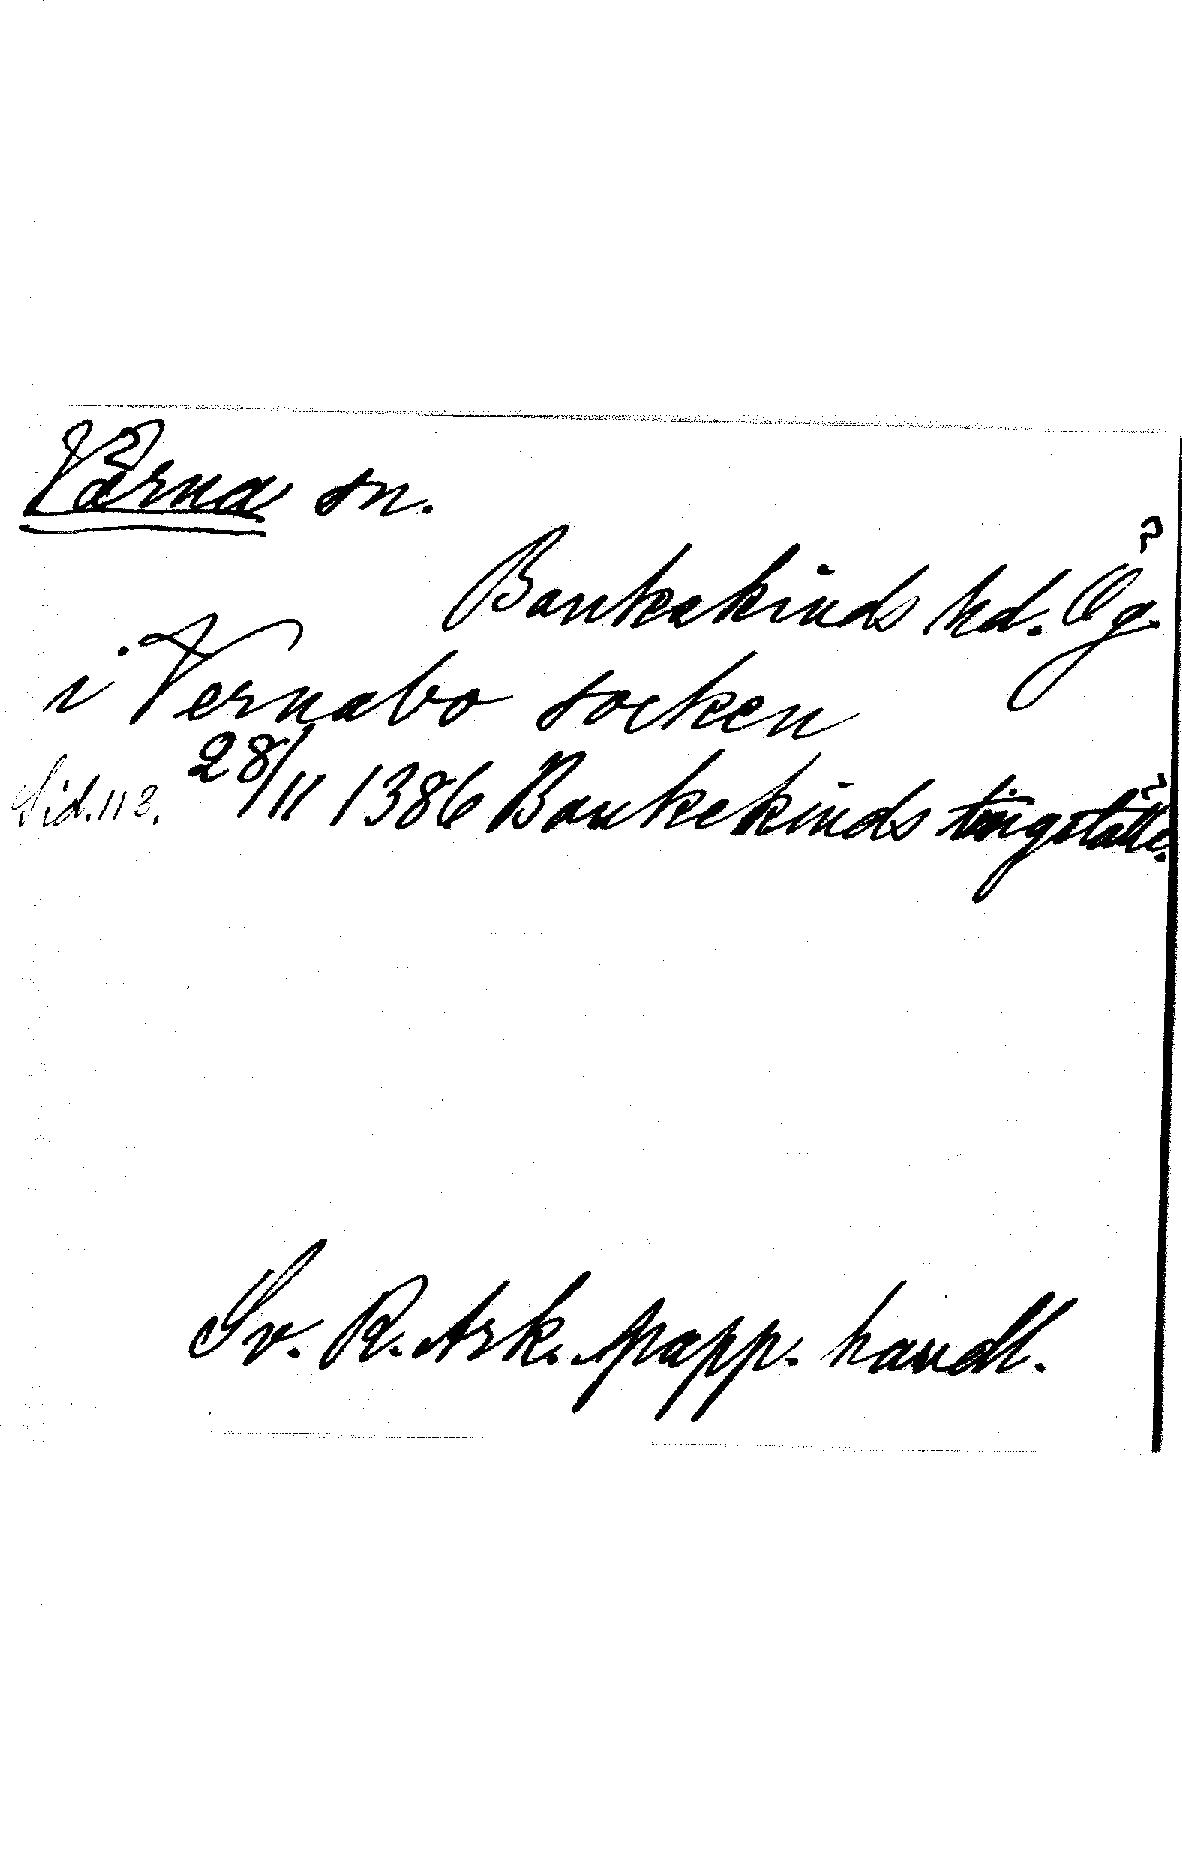 Värna sn.
Bankekinds hd. Ög.
i Vernabo socken
Sid. 113. 28/11 1386 Bankekinds tingställe.
Sv. R. Ark. papp. handl.